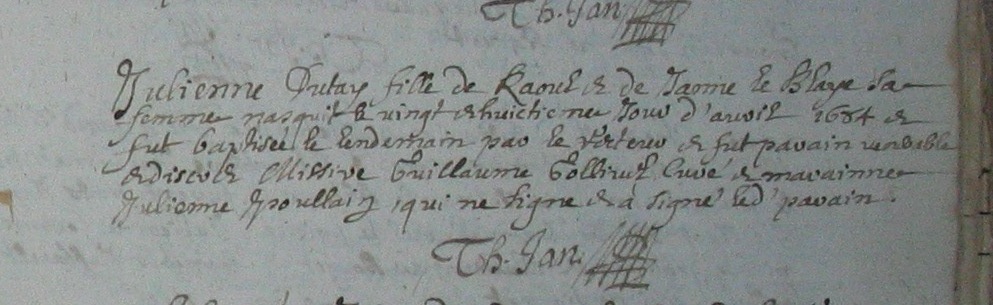 Th. Jan
Julienne Dutay fille de Raoul & de Janne le Blaye sa
femme nasquit le vingt & huictieme Jour d'avril 1684 &
fut baptisée le lendemain par le & fut parain venerable
& discret Missire Guillaume Curé & marainne
Julienne Poullain, qui ne signe & a signé led' parain.
Th. Jan